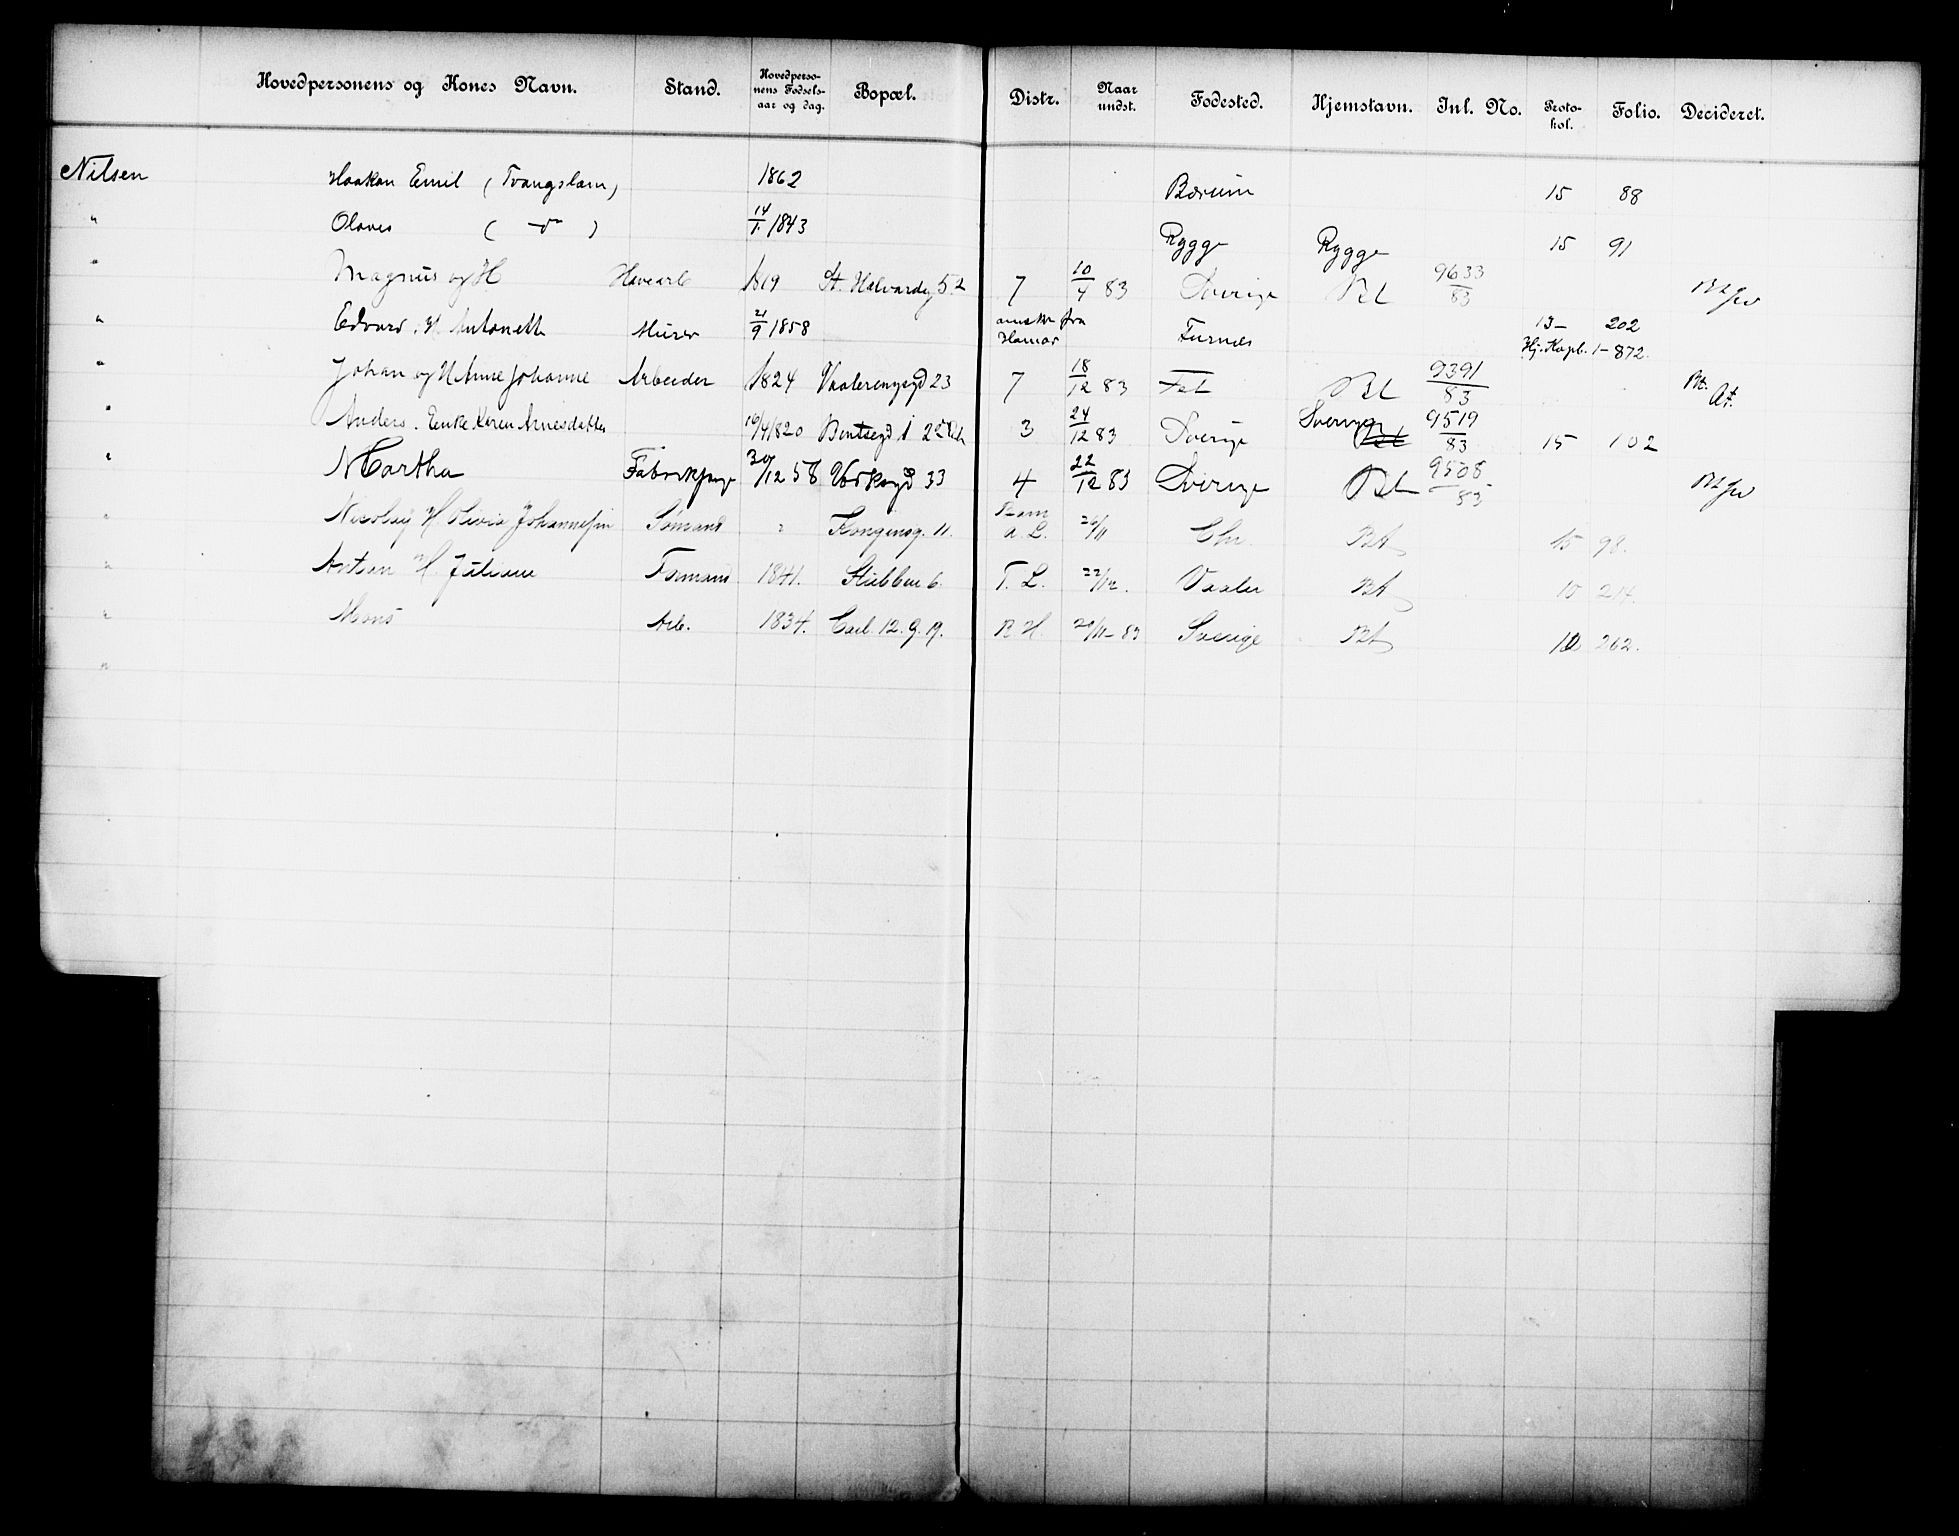 Hovedpersonens og Kones Navn. Stand. Hovedperso-nens Fødsels-aar og dag. Bopæl. Distr. Naar undst. Fødested. Hjemstavn. Inl. No. Proto-kol. Folio. Decideret.
Nilsen Haakan Emil (Tvangslem) 1862 Bærum 15 88
" Olaves ( do ) 14/1 1843 Rygge Rygge 15 91
" Magnus og H Havearb 1819 St. Halvardsg 52 7 10/4 83 Sverige Bt 9633/83 Bt
" Edvard. H Antonette Murer 21/9 1858 ansker fra Hamar Furnes 13- 202
Hj. Kopb. 1-872.
" Johan og H Anne Johanne Arbeider 1824 Vaalerenggd 23 7 18/12 83 Fet Bt 9391/83 Bt. At.
" Anders. Enke Karen Arnesdatter 19/4 1820 Bentsegd 3 24/12 83 Sverige Sverige 9519/83 15 102
" Martha Fabrikpige 30/12 58 33 4 22/12 83 Sverige Bt 9508/83 Bt
" Nicolay H Olivia Johannesen Sømand " Kongensg. 11. a. L. 26/11 Chr. BA 15 98.
" H. Juliane Formand 1841. Stubben 6. T. L. 22/12. Vaaler BA 10 214.
" Mons Arb. 1834. Carl. 12. g. 19. B H. 29/11-83 Sverige BA 10 262.
"